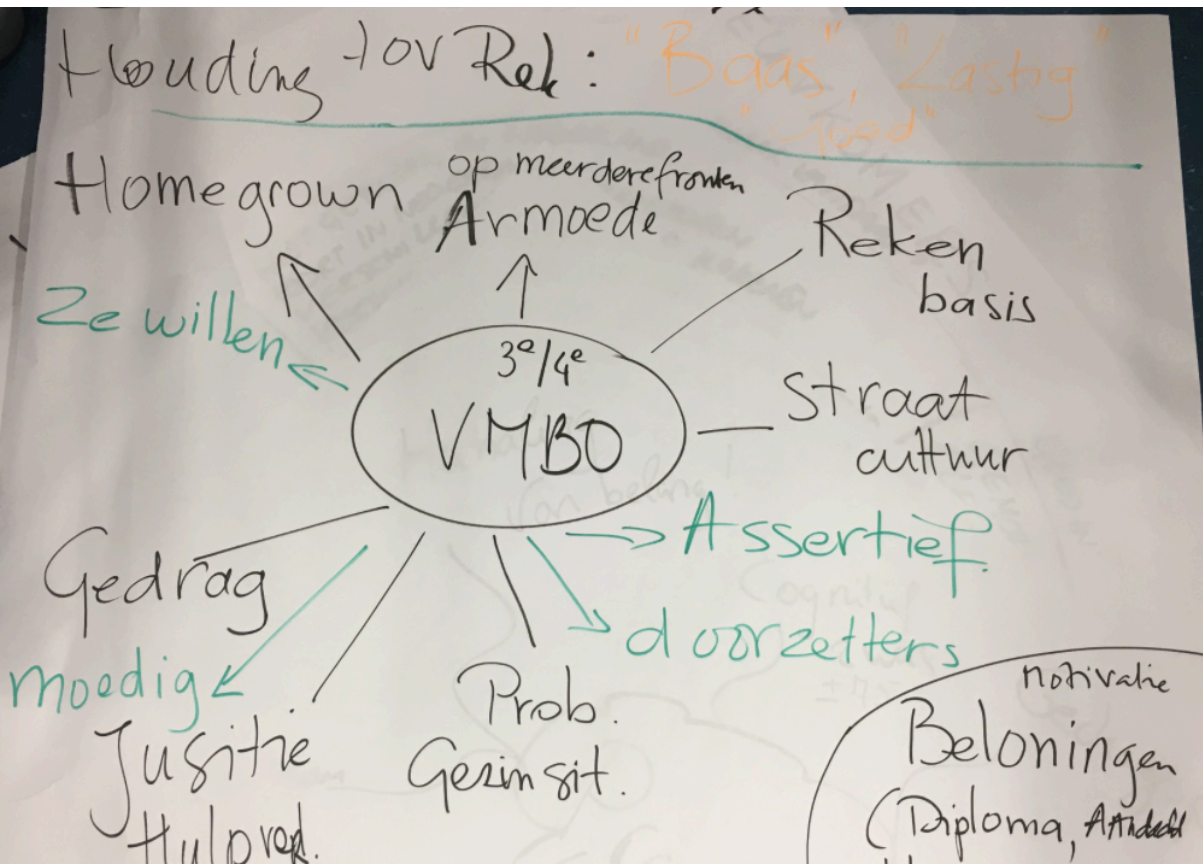 Houding tov Rek: "Baas", "Lastig"
"Goed"
Homegrown
op meerdere fronten
Armoede
Reken
basis
Ze willen
3e/4e
VMBO
Straat
cultuur
Assertief.
doorzetters
Gedrag
moedig
Jusitie
Hulpverl.
Prob.
Gezinsit.
motivatie
Beloningen
(Diploma,